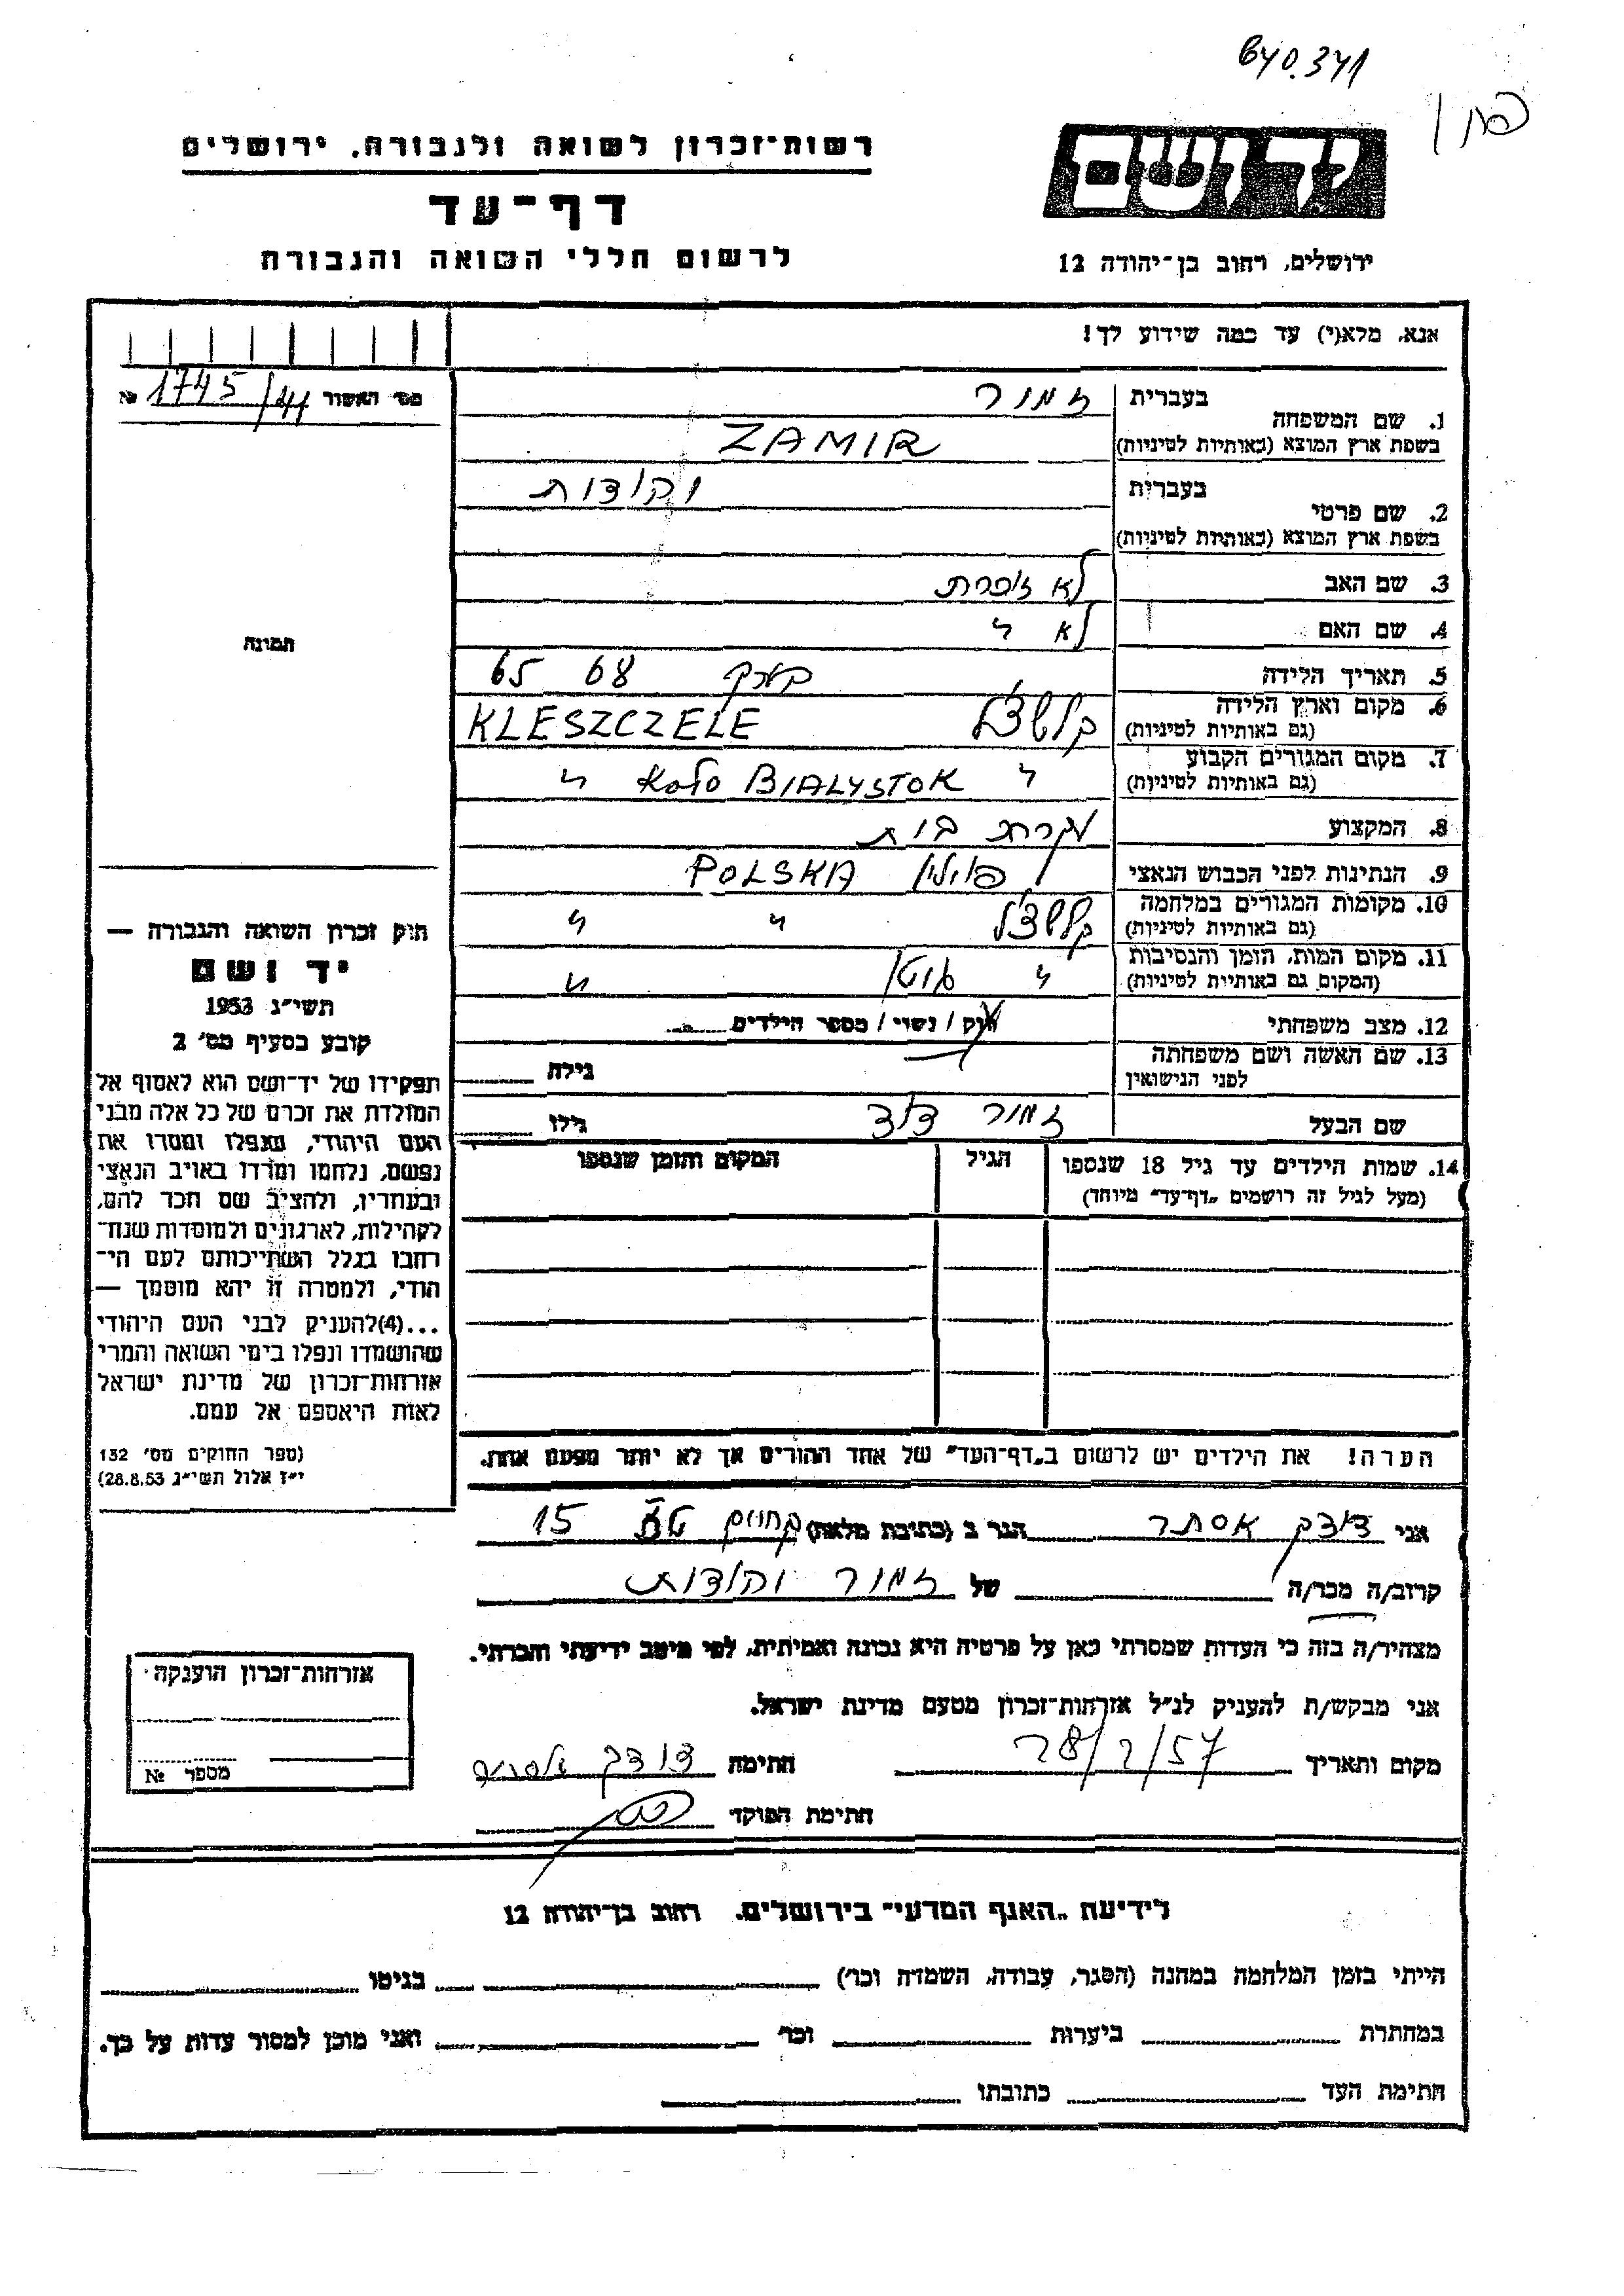 640.341
רשות־זכרון לשואה ולגבורה, ירושלים
יד ושם
דף־עד
לרשום חללי השואה והגבורה
ירושלים, רחוב בן־יהודה 12
אנא, מלא(י) עד כמה שידוע לך!
מס׳ האשור 1745/44 №
1. שם המשפחה
בעברית זמיר
בשפת ארץ המוצא (באותיות לטיניות) ZAMIR
2. שם פרטי
בעברית
בשפת ארץ המוצא (באותיות לטיניות)
3. שם האב לא זוכרת
4. שם האם לא "
תמונה
5. תאריך הלידה בערך 68 65
6. מקום וארץ הלידה
(גם באותיות לטיניות) קלשצ'ל KLESZCZELE
7. מקום המגורים הקבוע
(גם באותיות לטיניות) " BIALYSTOK אצל "
8. המקצוע עקרת בית
9. הנתינות לפני הכבוש הנאצי פולין POLSKA
10. מקומות המגורים במלחמה
(גם באותיות לטיניות) קלשצ'ל " "
11. מקום המות, הזמן והנסיבות
(המקום גם באותיות לטיניות) " "
12. מצב משפחתי רוק / נשוי / מספר הילדים
13. שם האשה ושם משפחתה
לפני הנישואין גילה
שם הבעל זמיר דוד גילו
14. שמות הילדים עד גיל 18 שנספו
(מעל לגיל זה רושמים "דף־עד" מיוחד)
הגיל
המקום והזמן שנספו
הערה! את הילדים יש לרשום ב"דף־העד" של אחד ההורים אך לא יותר מפעם אחת.
חוק זכרון השואה והגבורה —
יד ושם
תשי״ג 1953
קובע בסעיף מס׳ 2
תפקידו של יד־ושם הוא לאסוף אל
המולדת את זכרם של כל אלה מבני
העם היהודי, שנפלו ומסרו את
נפשם, נלחמו ומרדו באויב הנאצי
ובעוזריו, ולהציב שם וזכר להם,
לקהילות, לארגונים ולמוסדות שנח־
רבו בגלל השתייכותם לעם הי־
הודי, ולמטרה זו יהא מוסמך —
...(4)להעניק לבני העם היהודי
שהושמדו ונפלו בימי השואה והמרי
אזרחות־זכרון של מדינת ישראל
לאות היאספם אל עמם.
(ספר החוקים מס׳ 132
י״ז אלול תשי״ג 28.8.53)
אני אסתר הגר ב (כתובת מלאה) 15
קרוב/ה מכר/ה של זמיר
מצהיר/ה בזה כי העדות שמסרתי כאן על פרטיה היא נכונה ואמיתית, לפי מיטב ידיעתי והכרתי.
אני מבקש/ת להעניק לנ״ל אזרחות־זכרון מטעם מדינת ישראל.
מקום ותאריך 28/2/57 חתימה
חתימת הפוקד
אזרחות־זכרון הוענקה
מספר №
לידיעת "האגף המדעי" בירושלים, רחוב בן־יהודה 12
הייתי בזמן המלחמה במחנה (הסגר, עבודה, השמדה וכו׳) בגיטו
במחתרת ביערות וכו׳ ואני מוכן למסור עדות על כך.
חתימת העד כתובתו